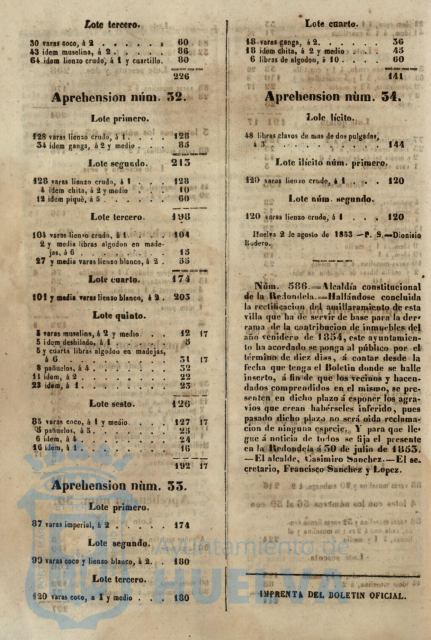 Lote tercero.
30 varas coco, á 2 . . . . . . . 60
43 idem muselina, á 2 . . . . . 86
64 idem lienzo crudo, á 1 y cuartillo. 80
226
Aprehension núm. 32.
Lote primero.
128 varas lienzo crudo, á 1 . . . . 128
34 idem ganga, á 2 y medio . . . . 85
Lote segundo. 213
128 varas lienzo crudo, á 1 . . . . 128
4 idem chita, á 2 y medio . . . . 10
12 idem piqué, á 5 . . . . . . 60
Lote tercero. 198
104 varas lienzo crudo, á 1 . . . . 104
2 y media libras algodon en made-
jas, á 6 . . . . . . . . 15
27 y medio varas lienzo blanco, á 2 . 55
Lote cuarto. 174
101 y media varas lienzo blanco, á 2 . 203
Lote quinto.
5 varas muselina, á 2 y medio . . . 12 17
5 idem deshilado, á 1 . . . . . 5
5 y cuarta libras algodon en madejas,
á 6 . . . . . . . . . 31 17
8 pañuelos, á 4 . . . . . . . 32
11 idem, á 2 . . . . . . . . 22
23 idem, á 1 . . . . . . . . 23
Lote sesto. 126
85 varas coco, á 1 y medio . . . . 127 17
pañuelos, á 5 . . . . . . . 25
6 idem, á 4 . . . . . . . . 24
16 idem, á 1 . . . . . . . . 16
192 17
Aprehension núm. 33.
Lote primero.
87 varas imperial, á 2 . . . . . 174
Lote segundo.
90 varas coco y lienzo blanco, á 2 . . 180
Lote tercero.
120 varas coco, a 1 y medio . . . . 180
Lote cuarto.
18 varas ganga, á 2 . . . . . . 36
18 idem chita, á 2 y medio . . . . 45
6 libras de algodon, á 10 . . . . 60
141
Aprehension nùm. 34.
Lote lícito.
48 libras clavos de mas de dos pulgadas,
á 3 . . . . . . . . . 144
Lote ilícito núm. primero.
120 varas lienzo crudo, á 1 . . . . 120
Lote núm. segundo.
120 varas lienzo crudo, á 1 . . . . 120
Huelva 2 de agosto de 1853—P. S.—Dionisio
Rodero.
Núm. 586.—Alcaldía constitucional
de la Redondela.—Hallándose concluida
la rectificacion del amillaramiento de esta
villa que ha de servir de base para la der-
rama de la contribucion de inmuebles del
año venidero de 1854, este ayuntamien-
to ha acordado se ponga al público por el
término de diez dias, á contar desde la
fecha que tenga el Boletin donde se halle
inserto, á fin de que los vecinos y hacen-
dados comprendidos en el mismo, se pre-
senten en dicho plazo á esponer los agra-
vios que crean habérseles inferido, pues
pasado dicho plazo no será oida reclama-
cion de ninguna especie. Y para que lle-
gue á noticia de todos se fija el presente
en la Redondela á 30 de julio de 1853.
—El alcalde, Casimiro Sanchez.—El se-
cretario, Francisco Sanchez y Lopez.
IMPRENTA DEL BOLETIN OFICIAL.
Ayuntamiento de
HUELVA